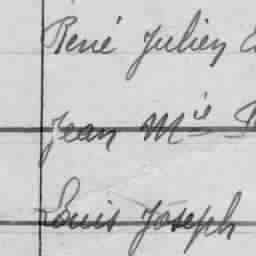 René Julien
Jean Mie
Louis Joseph